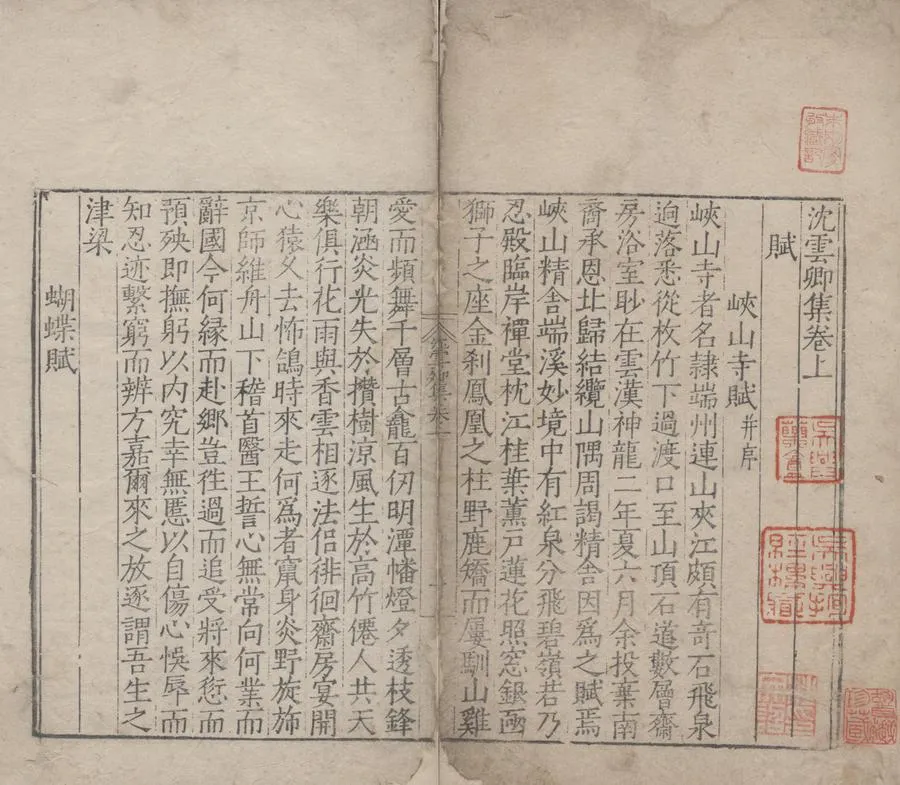 沈雲卿集卷上
賦
峽山寺賦 并序
峽山寺者名隸端州連山夾江頗有奇石飛泉
逈落悉從枚竹下過渡口至山頂石道數層齋
房浴室眇在雲漢神龍二年夏六月余投棄南
裔承恩北歸結纜山隅周謁精舎因爲之賦焉
峽山精舎端溪妙境中有紅泉分飛碧嶺若乃
忍殿臨岸禪堂枕江桂葉薰戸蓮花照窓銀函
獅子之座金刹鳳凰之柱野鹿矯而屢馴山雞
愛而頻舞千層古龕百仞明潭幡燈夕透枝鋒
朝涵炎光失於攢樹涼風生於高竹僊人共天
樂俱行花雨與香雲相逐法侣徘徊齋房宴開
心猿久去怖鴿時來走何爲者竄身炎野旋斾
京師維舟山下稽首醫王誓心無常向何業而
辭國今何縁而赴鄉豈徃過而追受將來愆而
預殃即撫躬以内究幸無慝以自傷心悞辱而
知忍迹繫窮而辨方嘉爾來之放逐謂吾生之
津梁
蝴蝶賦